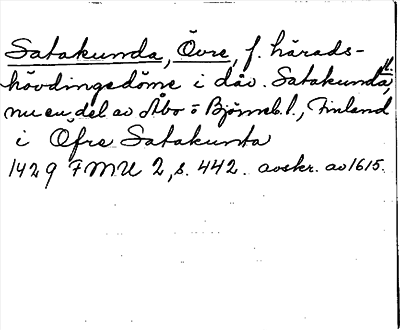 Satakunda, Övre, f. härads-
hövdingedöme i dåv. Satakunda,
nu en del av Åbo o Björneb. l., Finland
i Öfre Satakunta
1429 FMU 2, s. 442. avskr. av 1615.